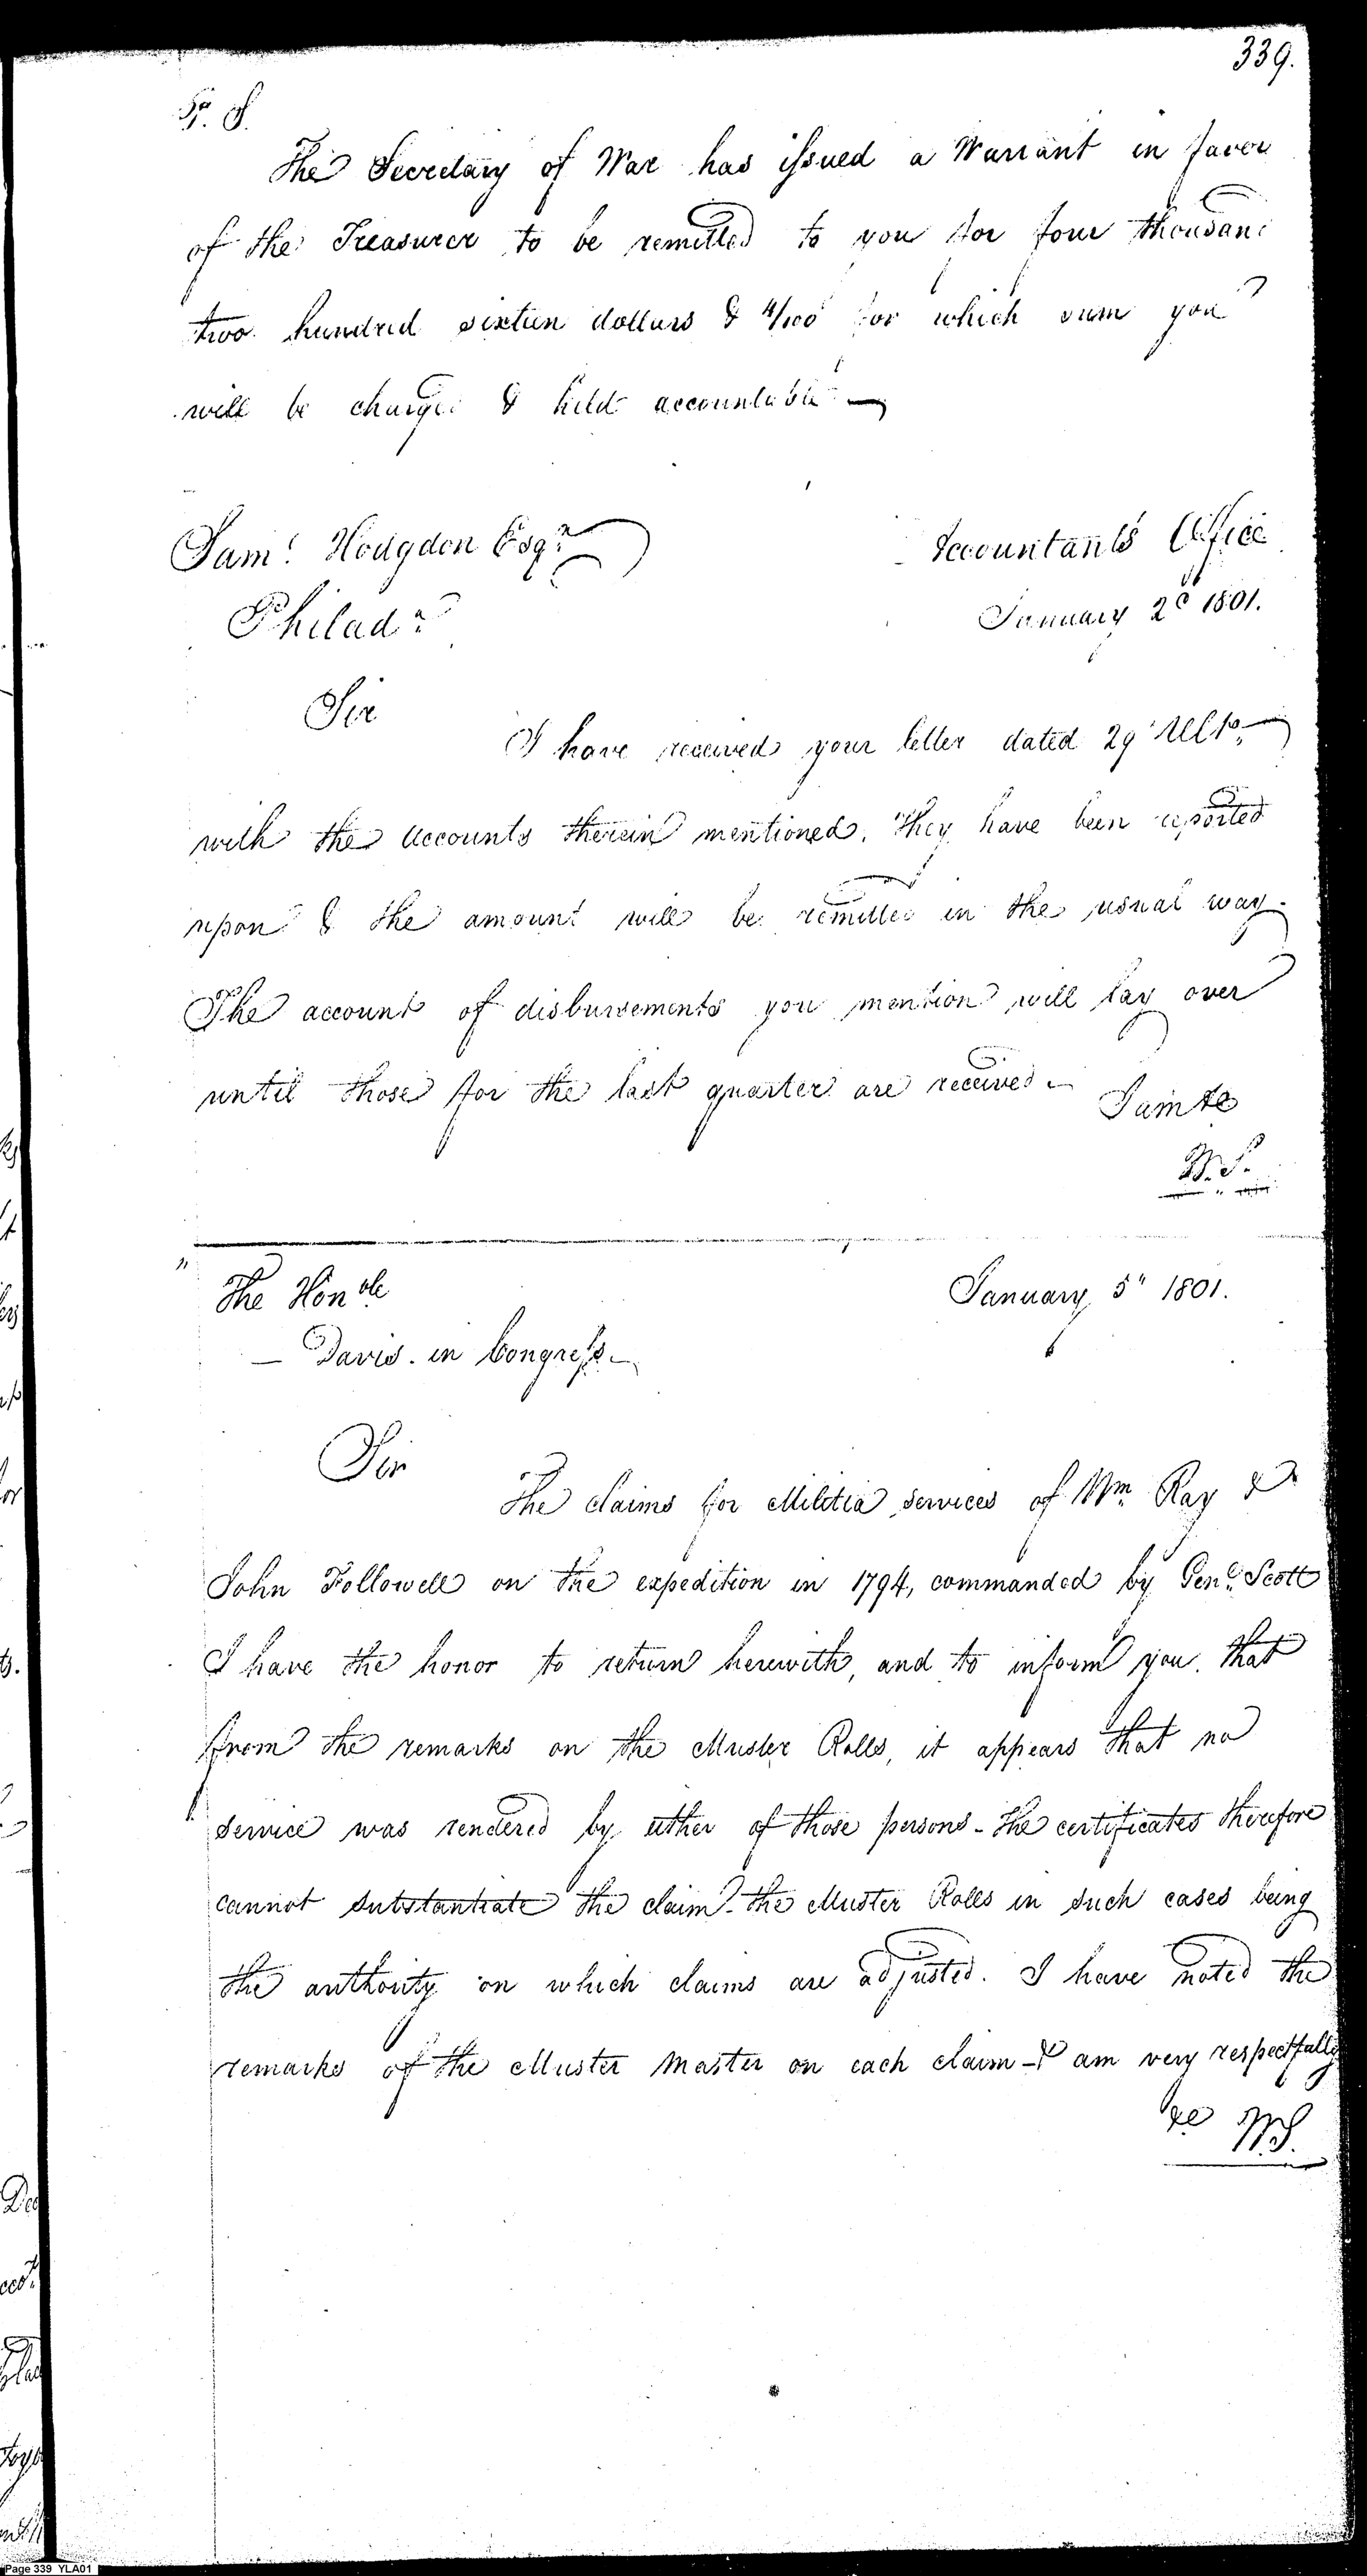 339.
P. S.
The Secretary of War has issued a Warrant in favor
of the Treasurer to be remitted to you for four thousand
two hundred sixteen dollars & 4/100 for which sum you
will be charged & held accountable
Saml. Hodgdon Esqr.
Accountants Office
Philada.
January 2d 1801.
Sir
I have received your letter dated 29 Ulto.
with the accounts therein mentioned. They have been reported
upon & the amount will be remitted in the usual way.
The account of disbursements you mention will lay over
until those for the last quarter are received -
I am &c
W. S.
The Honble
January 5th 1801.
— Davis. in Congress
Sir
The claims for Militia services of Wm. Ray &
John Followell on the expedition in 1794, commanded by Genl. Scott
I have the honor to return herewith, and to inform you that
from the remarks on the Muster Rolls, it appears that no
service was rendered by either of those persons - The certificates therefore
cannot substantiate the claim - the Muster Rolls in such cases being
the authority on which claims are adjusted. I have noted the
remarks of the Muster Master on each claim - & am very respectfully
&c WS.
Page 339 YLA01